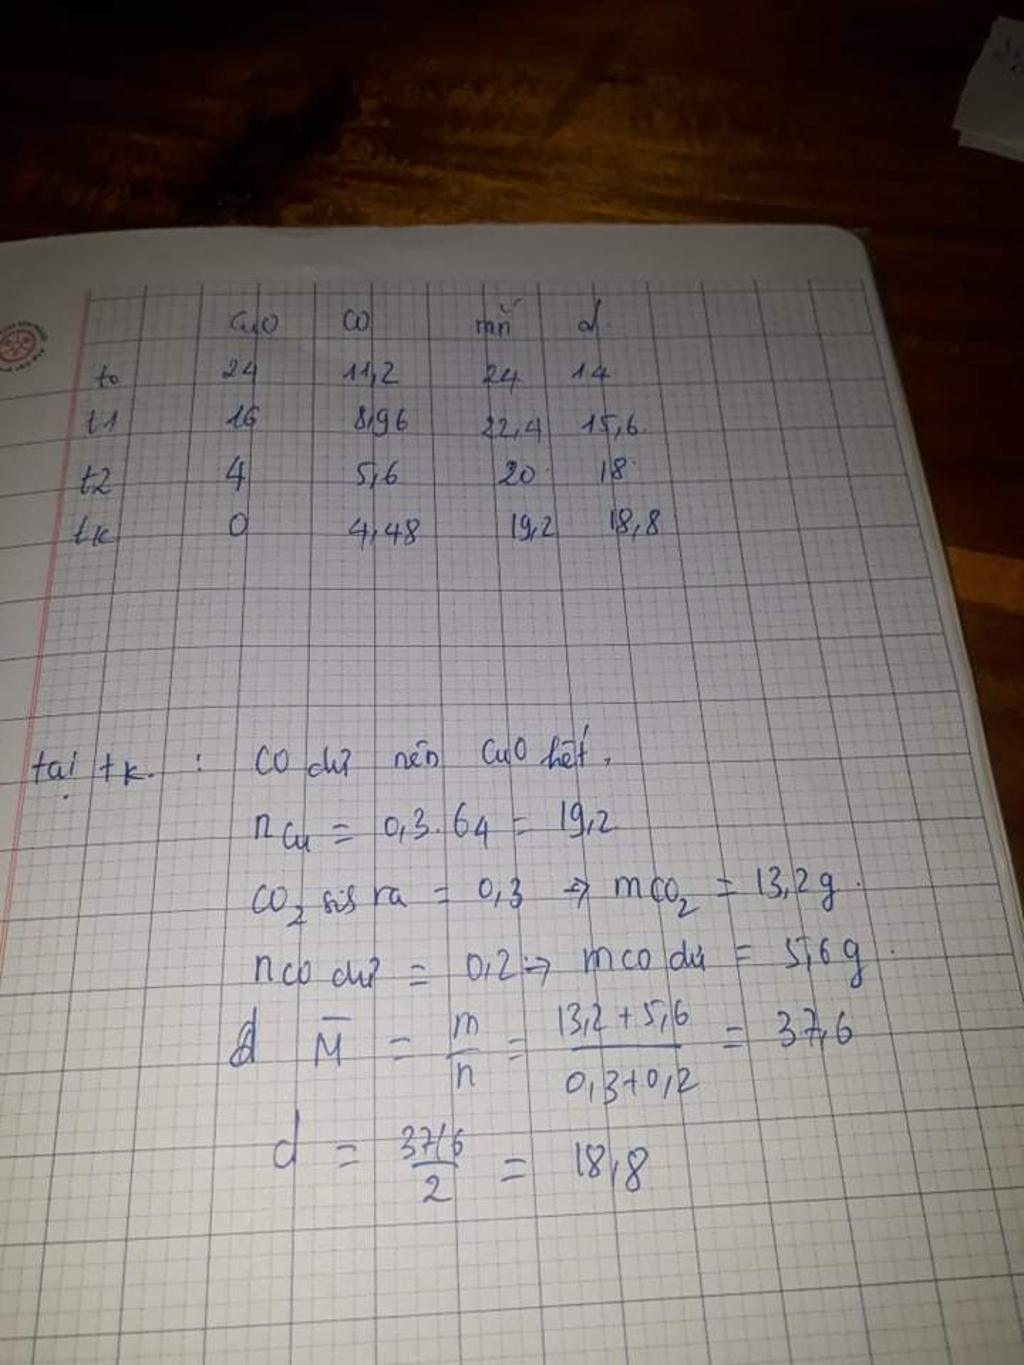 CuO CO mĩĩ d
t0 24 11,2 24 14
t1 16 8,96 22,4 15,6
t2 4 5,6 20 18
tk 0 4,48 19,2 18,8
tại tk : CO dư nên CuO hết.
nCu = 0,3.64 = 19,2
CO2 sis ra = 0,3 => mCO2 = 13,2g.
nCO dư = 0,2 => mCO dư = 5,6g.
M̄ = m/n = (13,2+5,6)/(0,3+0,2) = 37,6
d = 37,6/2 = 18,8